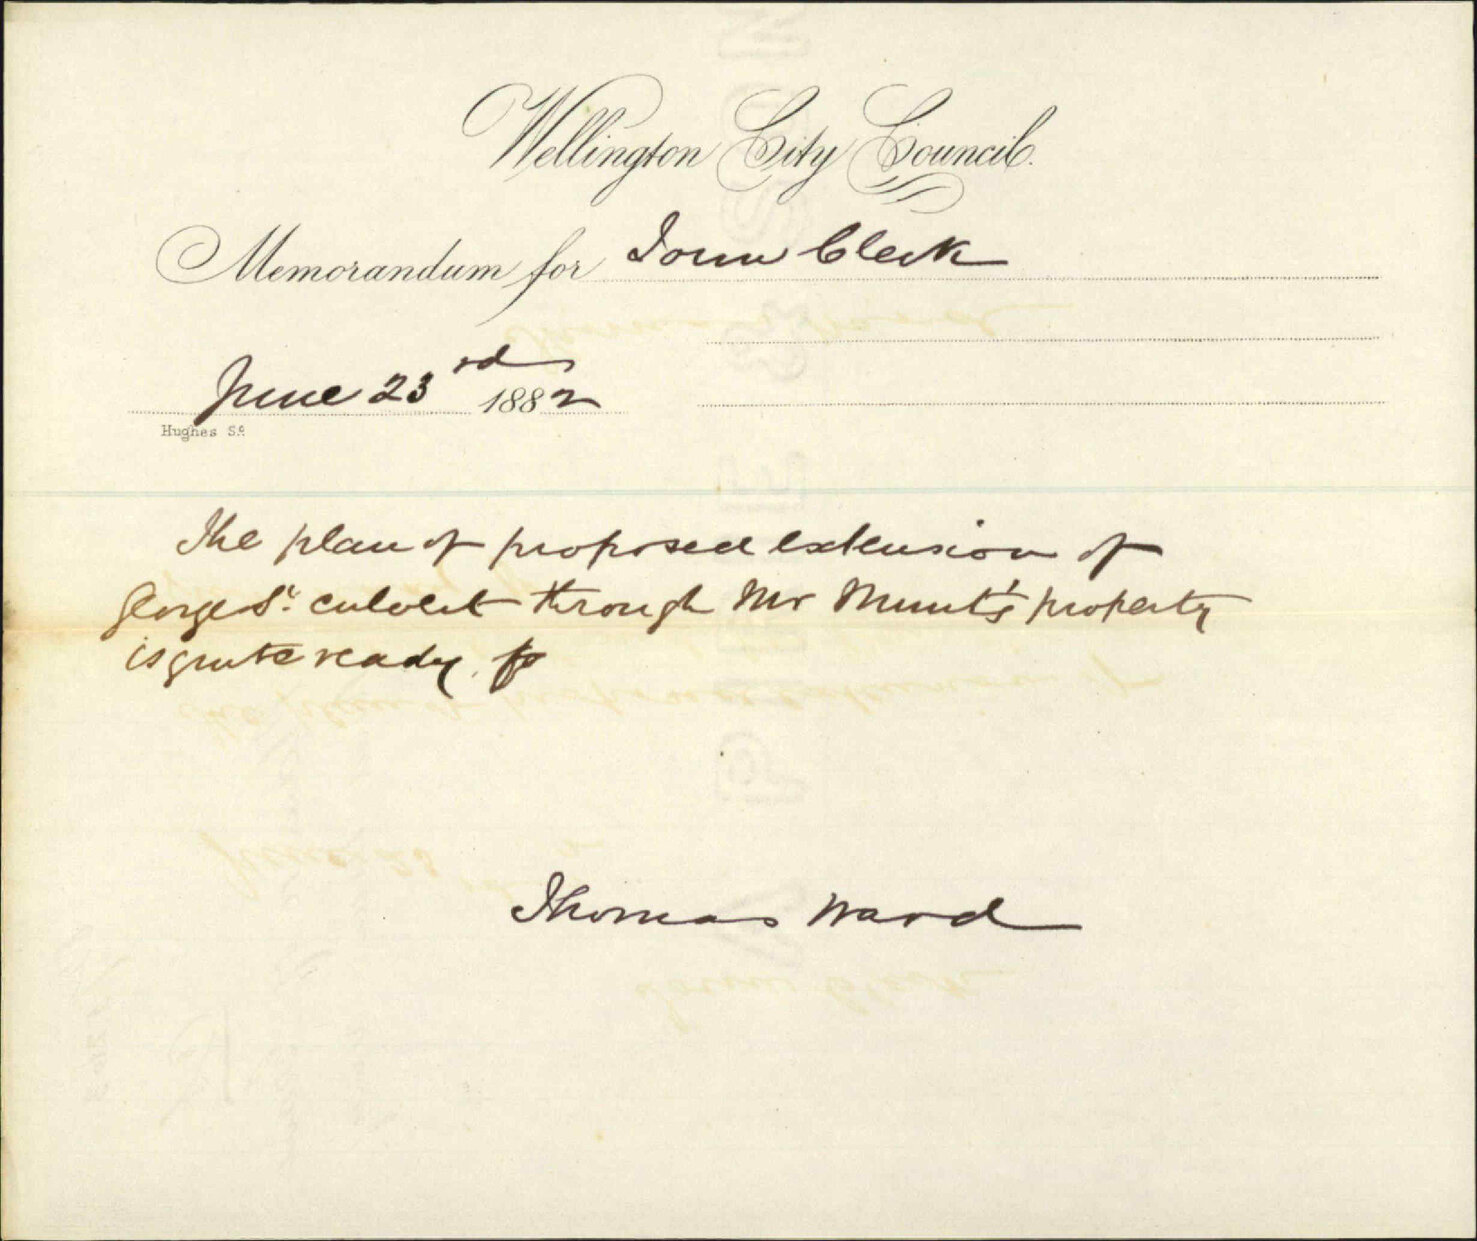 Wellington City Council.
Memorandum for Town Clerk
June 23rd 1882
Hughes Sc.
The plan of proposed extension of
George St. culvert through Mr Munt's property
is quite ready.
Thomas Ward